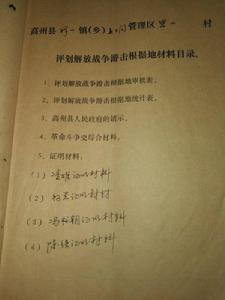 高州县 镇(乡) 管理区 村
评划解放战争游击根据地材料目录
1、评划解放战争游击根据地审批表。
2、评划解放战争游击根据地统计表。
3、高州县人民政府的请示。
4、革命斗争史综合材料。
5、证明材料：
(1) 证明材料
(2) 证明材料
(3) 证明材料
(4) 证明材料